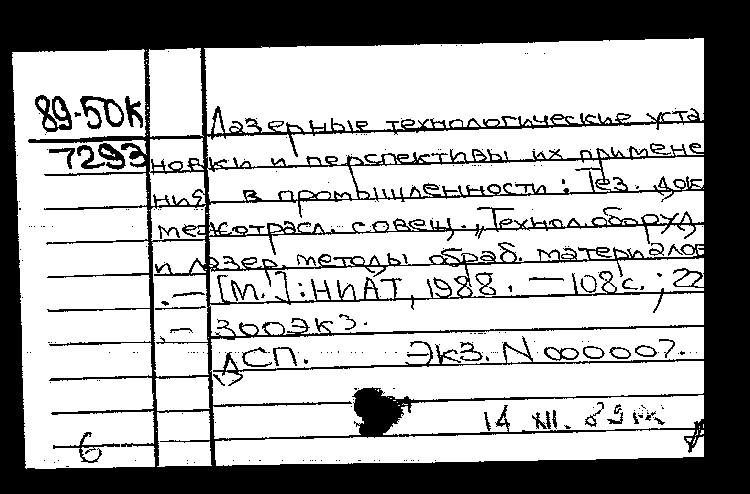 89-50К
7293
Лазерные технологические уста
новки и перспективы их примене
ния в промышленности: Тез. док
межотрасл. совещ. „Технол. оборуд
и лазер. методы обраб. материалов
.— [М.]: НИАТ, 1988. — 108с.; 22
.— 300экз.
ДСП. Экз. N 000007.
14. XII. 89
6